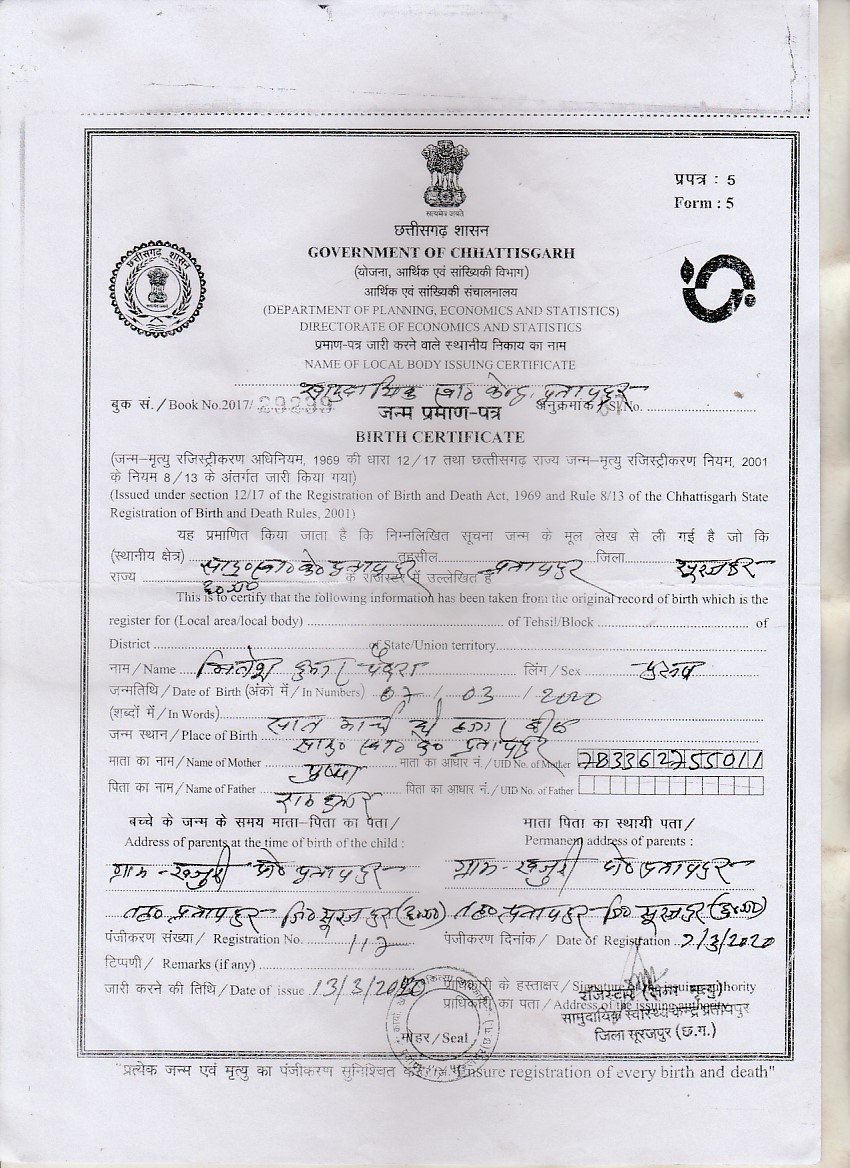 सत्यमेव जयते
प्रपत्र : 5
Form : 5
छत्तीसगढ़ शासन
छत्तीसगढ़ शासन
GOVERNMENT OF CHHATTISGARH
(योजना, आर्थिक एवं सांख्यिकी विभाग)
आर्थिक एवं सांख्यिकी संचालनालय
(DEPARTMENT OF PLANNING, ECONOMICS AND STATISTICS)
DIRECTORATE OF ECONOMICS AND STATISTICS
प्रमाण-पत्र जारी करने वाले स्थानीय निकाय का नाम
NAME OF LOCAL BODY ISSUING CERTIFICATE
स्वा० केन्द्र प्रतापपुर
बुक सं./Book No.2017/ 29299 अनुक्रमांक/Sl.No.
जन्म प्रमाण-पत्र
BIRTH CERTIFICATE
(जन्म-मृत्यु रजिस्ट्रीकरण अधिनियम, 1969 की धारा 12/17 तथा छत्तीसगढ़ राज्य जन्म-मृत्यु रजिस्ट्रीकरण नियम, 2001
के नियम 8/13 के अंतर्गत जारी किया गया)
(Issued under section 12/17 of the Registration of Birth and Death Act, 1969 and Rule 8/13 of the Chhattisgarh State
Registration of Birth and Death Rules, 2001)
यह प्रमाणित किया जाता है कि निम्नलिखित सूचना जन्म के मूल लेख से ली गई है जो कि
(स्थानीय क्षेत्र) सामु० स्वा० के० प्रतापपुर तहसील प्रतापपुर जिला सूरजपुर
राज्य छ०ग० के रजिस्टर में उल्लेखित है
This is to certify that the following information has been taken from the original record of birth which is the
register for (Local area/local body) of Tehsil/Block of
District of State/Union territory
नाम/Name कुमार पैकरा लिंग/Sex पुरुष
जन्मतिथि/Date of Birth (अंको में/In Numbers) 07/03/2020
(शब्दों में/In Words) सात मार्च दो हजार बीस
जन्म स्थान/Place of Birth सामु० स्वा० के० प्रतापपुर
माता का नाम/Name of Mother पुष्पा माता का आधार नं./UID No. of Mother 783362755011
पिता का नाम/Name of Father राजकुमार पिता का आधार नं./UID No. of Father
बच्चे के जन्म के समय माता-पिता का पता/ माता पिता का स्थायी पता/
Address of parents at the time of birth of the child : Permanent address of parents :
ग्राम - खजुरी पो० प्रतापपुर ग्राम - खजुरी पो० प्रतापपुर
तह० प्रतापपुर जि० सूरजपुर (छ०ग०) तह० प्रतापपुर जि० सूरजपुर (छ०ग०)
पंजीकरण संख्या/ Registration No. 112 पंजीकरण दिनांक/ Date of Registration 9/3/2020
टिप्पणी/ Remarks (if any)
जारी करने की तिथि/Date of issue 13/3/2020 प्राधिकारी के हस्ताक्षर/Signature of the issuing authority
प्राधिकारी का पता/Address of the issuing authority
रजिस्टार (जन्म मृत्यु)
सामुदायिक स्वास्थ्य केन्द्र प्रतापपुर
जिला सूरजपुर (छ.ग.)
मोहर/Seal
"प्रत्येक जन्म एवं मृत्यु का पंजीकरण सुनिश्चित Ensure registration of every birth and death"